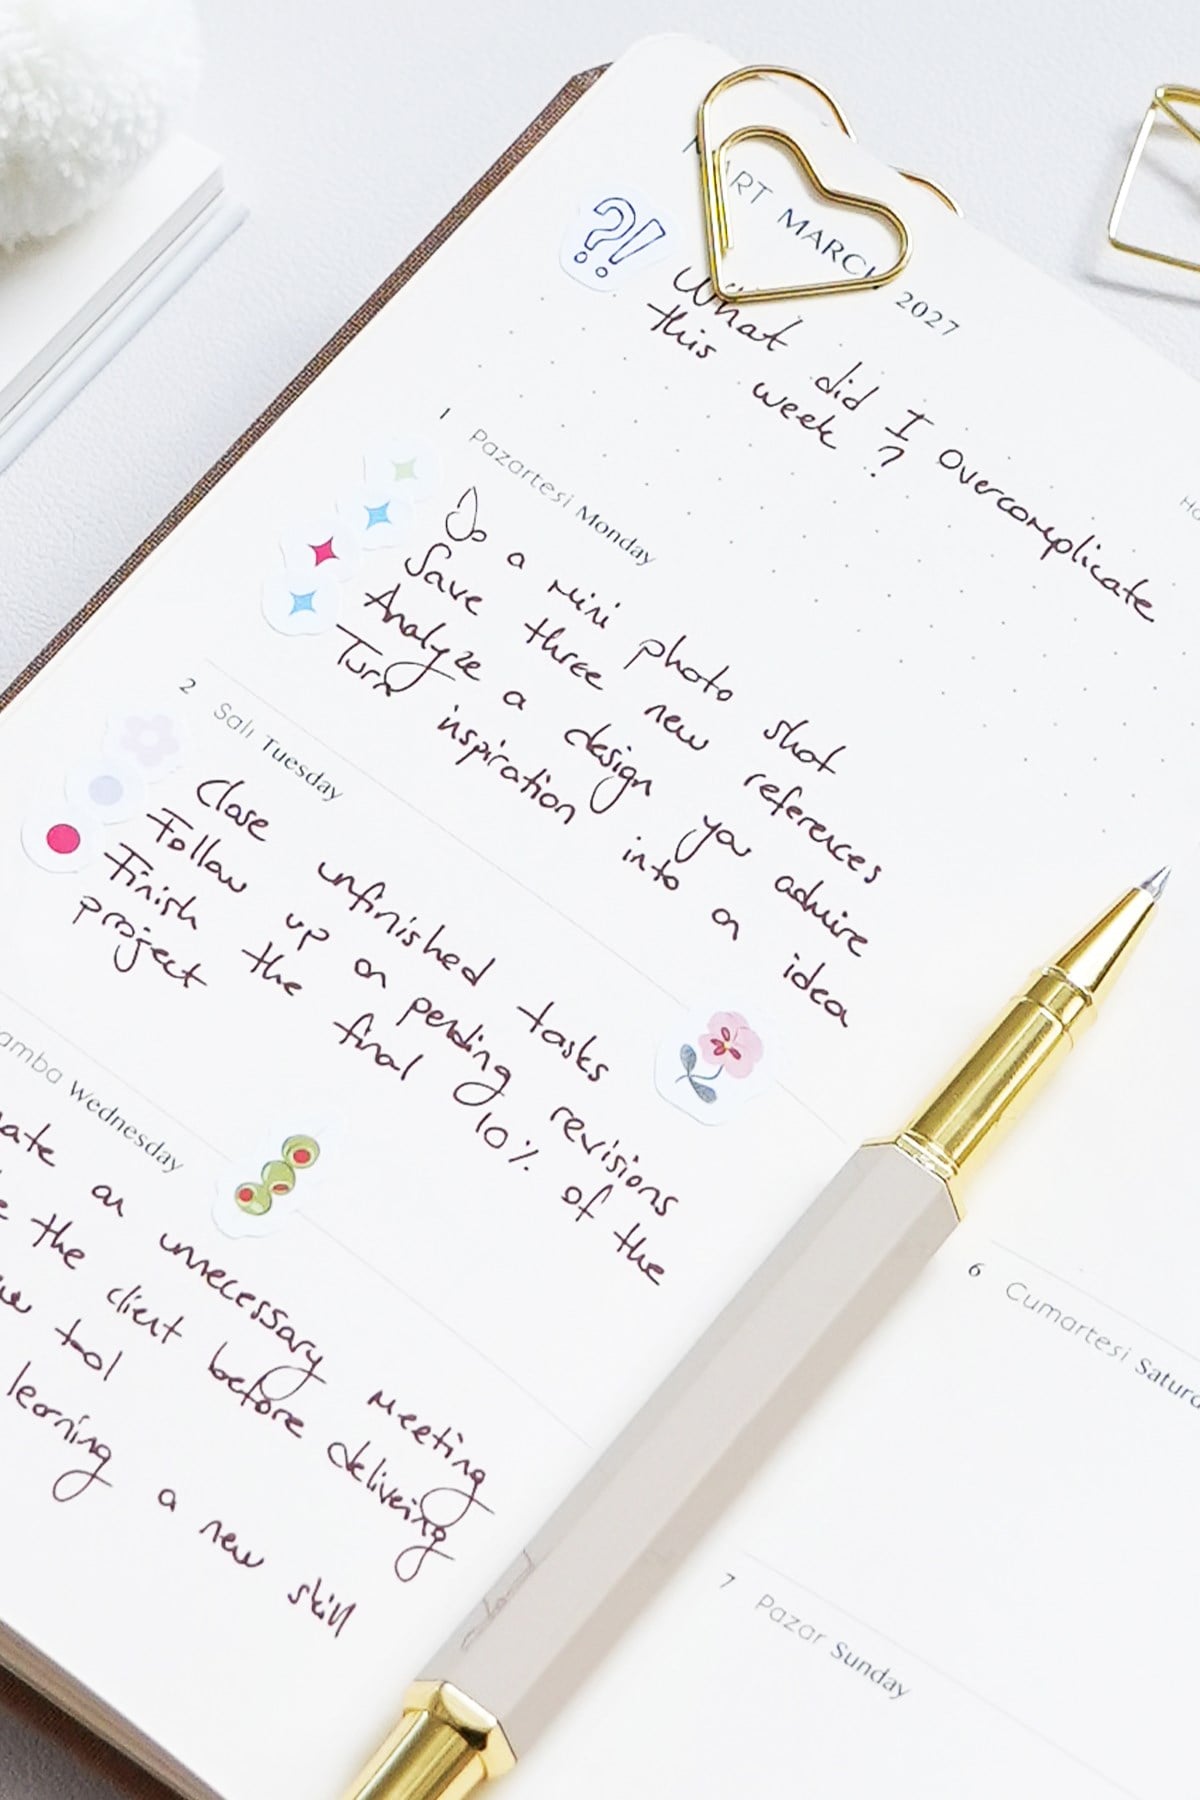 MART MARCH 2027
?!
What did I overcomplicate
this week?
1 Pazartesi Monday
Do a mini photo shot
Save three new references
Analyze a design you admire
Turn inspiration into an idea
2 Salı Tuesday
Close unfinished tasks
Follow up on pending revisions
Finish the final 10% of the
project
amba Wednesday
ate an unnecessary meeting
the client before delivering
tool
learning a new skill
6 Cumartesi Satur
7 Pazar Sunday